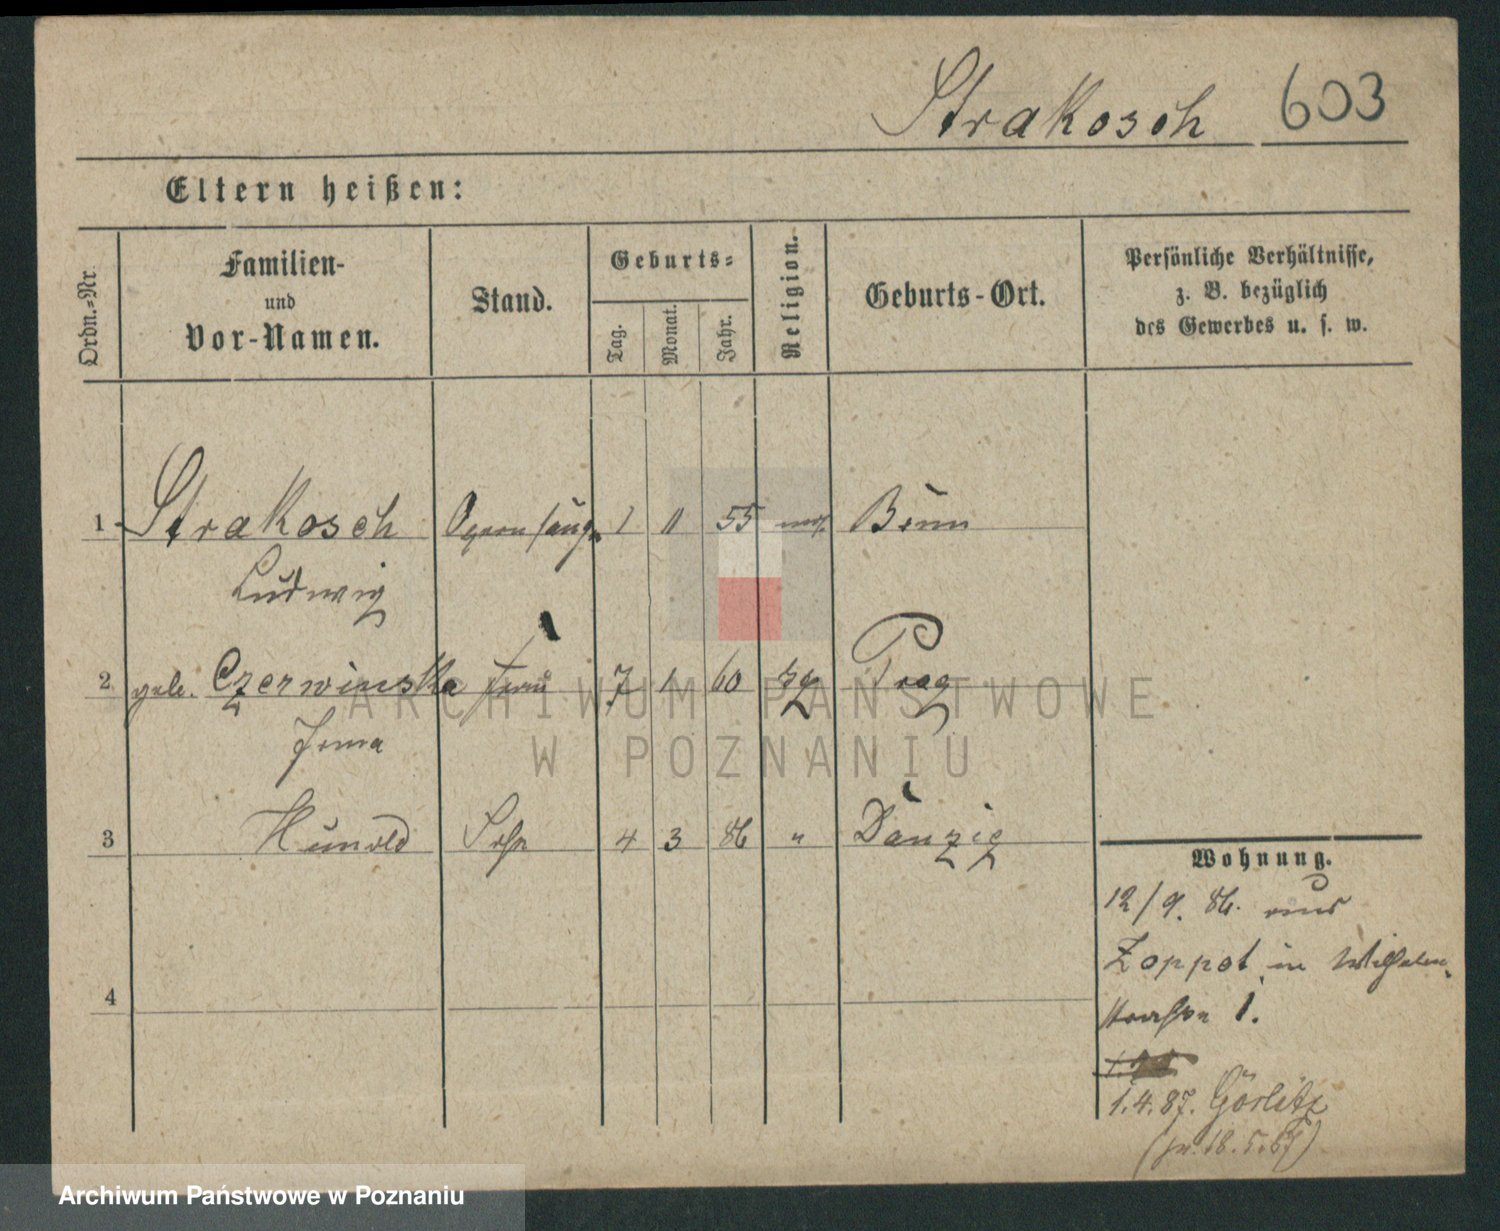 Strakosch 603
Eltern heißen:
Ordn.-Nr.
Familien-
und
Vor-Namen.
Stand.
Geburts-
Tag.
Monat.
Jahr.
Religion.
Geburts-Ort.
Persönliche Verhältnisse,
z. B. bezüglich
des Gewerbes u. s. w.
1 Strakosch Opernsänger 1 11 55 mos. Brünn
Ludwig
2 geb. Czerwinska Frau 7 1 60 Prag
Irma
3 Hunold Sohn 4 3 86 " Danzig
4
Wohnung.
12/9. 86. aus
Zoppot in Wilhelm-
straße 1.
1.4.87. Görlitz
ARCHIWUM PAŃSTWOWE
W POZNANIU
Archiwum Państwowe w Poznaniu